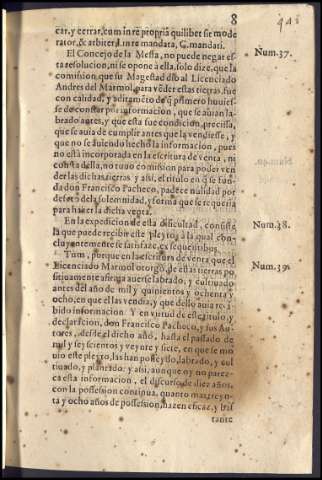 8
car, y cerrar, cum in re propria quilibet sit mode
rator, & arbiter. l. in re mandata, C. mandati.
El Concejo de la Mesta, no puede negar es
ta resolucion, ni se opone a ella, solo dize, que la
comission, que su Magestad dio al Licenciado
Andres del Marmol, para vẽder estas tierras, fue
con calidad, y aditamẽto de q̃ primero huuies-
se de constar por informacion, que se auian la-
brado antes, y que esta fue condicion, precissa,
que se auia de cumplir antes que la vendiesse, y
que no se auiendo hecho la informacion, pues
no està incorporada en la escritura de venta, ni
consta della, no tuuo comission para poder ven
der las dichas tierras, y assi, el titulo en q̃ se fun
da don Francisco Pacheco, padece nulidad por
defecto de la solemnidad, y forma que se requeria
para hazer la dicha venta.
En la expedicion de esta dificultad, consiste
la que puede recibir este pleyto, à la qual con-
cluyentemente se satisface, ex sequentibus.
Tum, porque en la escritura de venta que el
Licenciado Marmol otorgò, de estas tierras po
sitiuamente afirma auerse labrado, y cultiuado
antes del año de mil y quinientos y ochenta y
ocho, en que el las vendia, y que dello auia reci-
bido informacion. Y en virtud de este titulo, y
declaracion, don Francisco Pacheco, y sus Au-
tores, desde el dicho año, hasta el passado de
mil y seyscientos y veynte y siete, en que se mo
uio este pleyto, las han posseydo, labrado, y cul
tiuado, y plantado: y assi, aunque oy no parez-
ca esta informacion, el discurso de diez años,
con la possession continua, quanto mas treyn-
ta y ocho años de possession, hazen eficaz, y bas
tante
Num. 37.
Num. 38.
Num. 39.